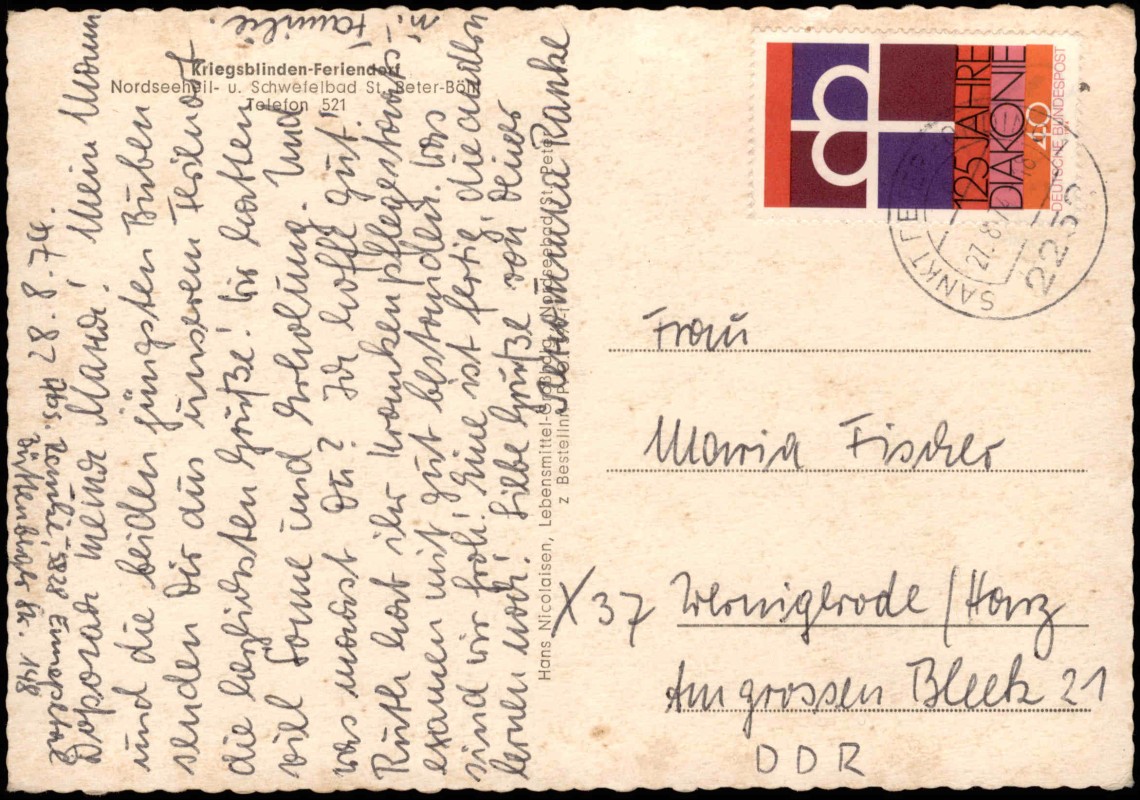 Kriegsblinden-Feriendorf
Nordseeheil- u. Schwefelbad St. Peter-Böhl
Telefon 521
28.8.74.
Abs. Ranke, 5828 Ennepetal
Str. 148
meine Mein Mann
und die beiden jüngsten Buben
senden Dir aus unserem Feriendorf
die herzlichsten Grüße! Wir hatten
viel Sonne und Erholung. Und
was machst Du? Ich hoffe gut.
Ruth hat ihr Krankenpflegestaats-
examen mit gut bestanden. Das
sind wir froh! Eine ist fertig, die anden
lernen noch! Liebe Grüße von Deiner
Hanna Ranke
u. Familie.
Hans Nicolaisen, Lebensmittel-Großhdlg., Nordseebad St. Peter
z Bestellnr.
125 JAHRE
DIAKONIE
40
DEUTSCHE BUNDESPOST
SANKT PETER
27.8.
2252
Frau
Maria Fischer
X 37 Wernigerode/Harz
Am grossen Bleek 21
DDR